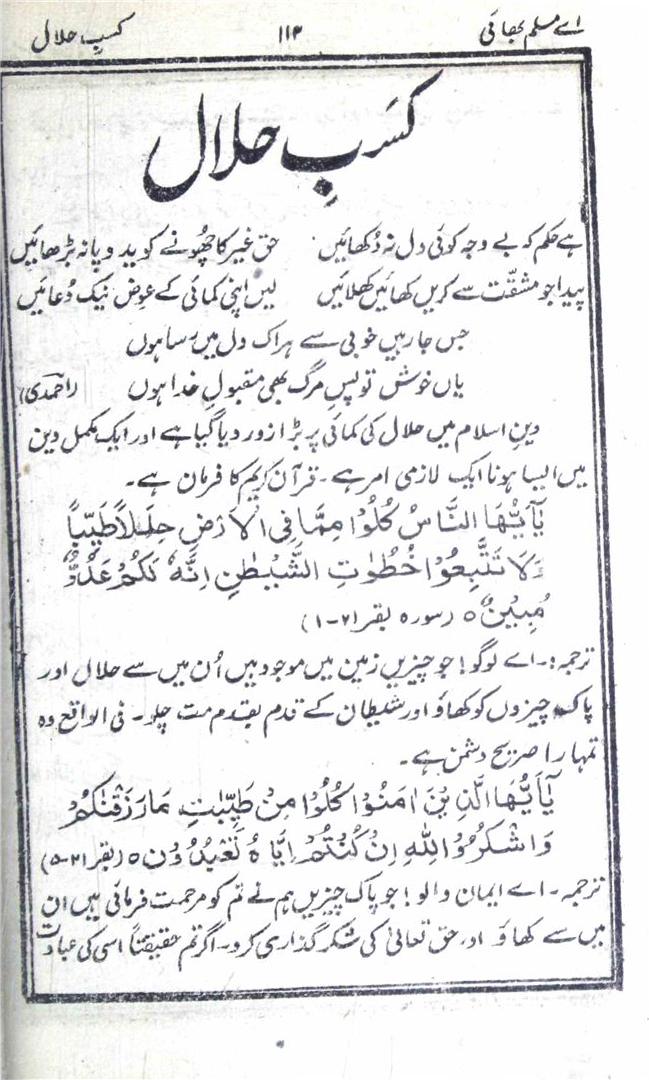 اے مسلم بھائی ۱۱۳ کسبِ حلال
کسَبِ حلال
ہے حکم کہ بے وجہ کوئی دل نہ دُکھائیں حق غیر کا چھُونے کو ید و پا نہ بڑھائیں
پیدا جو مشقّت سے کریں کھائیں کھلائیں لیں اپنی کمائی کے عوض نیک دُعائیں
جس جا رہیں خوبی سے ہر اک دل میں رسا ہوں
یاں خوش تو پسِ مرگ بھی مقبولِ خدا ہوں (احمدی)
دینِ اسلام میں حلال کی کمائی پر بڑا زور دیا گیا ہے اور ایک مکمل دین
میں ایسا ہونا ایک لازمی امر ہے۔ قرآن کریم کا فرمان ہے۔
یٰۤاَیُّهَا النَّاسُ كُلُوْا مِمَّا فِی الْاَرْضِ حَلٰلًا طَیِّبًا
وَلَا تَتَّبِعُوْا خُطُوٰتِ الشَّیْطٰنِ اِنَّهٗ لَكُمْ عَدُوٌّ
مُّبِیْنٌ ۝ (سورہ بقر ۲-۱)
ترجمہ:۔ اے لوگو! جو چیزیں زمین میں موجود ہیں اُن میں سے حلال اور
پاک چیزوں کو کھاؤ اور شیطان کے قدم بقدم مت چلو۔ فی الواقع وہ
تمہارا صریح دشمن ہے۔
یٰۤاَیُّهَا الَّذِیْنَ اٰمَنُوْا كُلُوْا مِنْ طَیِّبٰتِ مَا رَزَقْنٰكُمْ
وَاشْكُرُوْا لِلّٰهِ اِنْ كُنْتُمْ اِیَّاهُ تَعْبُدُوْنَ ۝ (بقر ۲-۵)
ترجمہ۔ اے ایمان والو! جو پاک چیزیں ہم نے تم کو مرحمت فرمائی ہیں ان
میں سے کھاؤ اور حق تعالیٰ کی شکر گذاری کرو۔ اگر تم حقیقتاً اسی کی عبادت